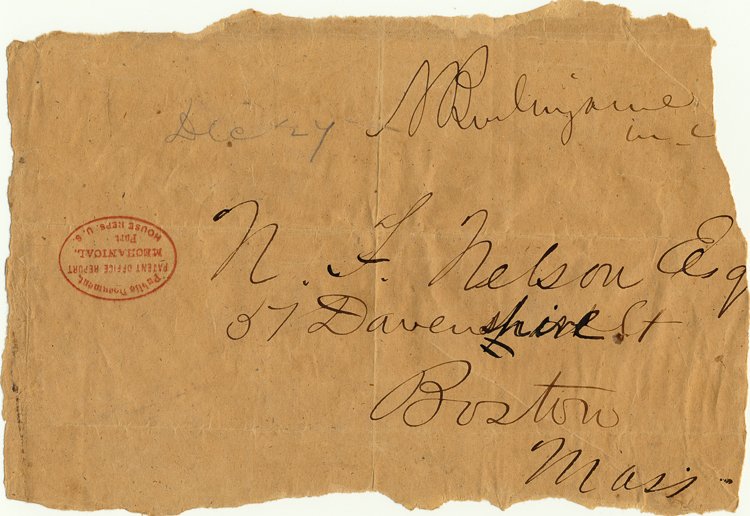 A Burlingame
m.c
Dec 27
N. F. Nelson Esq
57 Davenshire St
Boston
Mass
Public Document
PATENT OFFICE REPORT
MECHANICAL.
Part
HOUSE REPS. U.S.